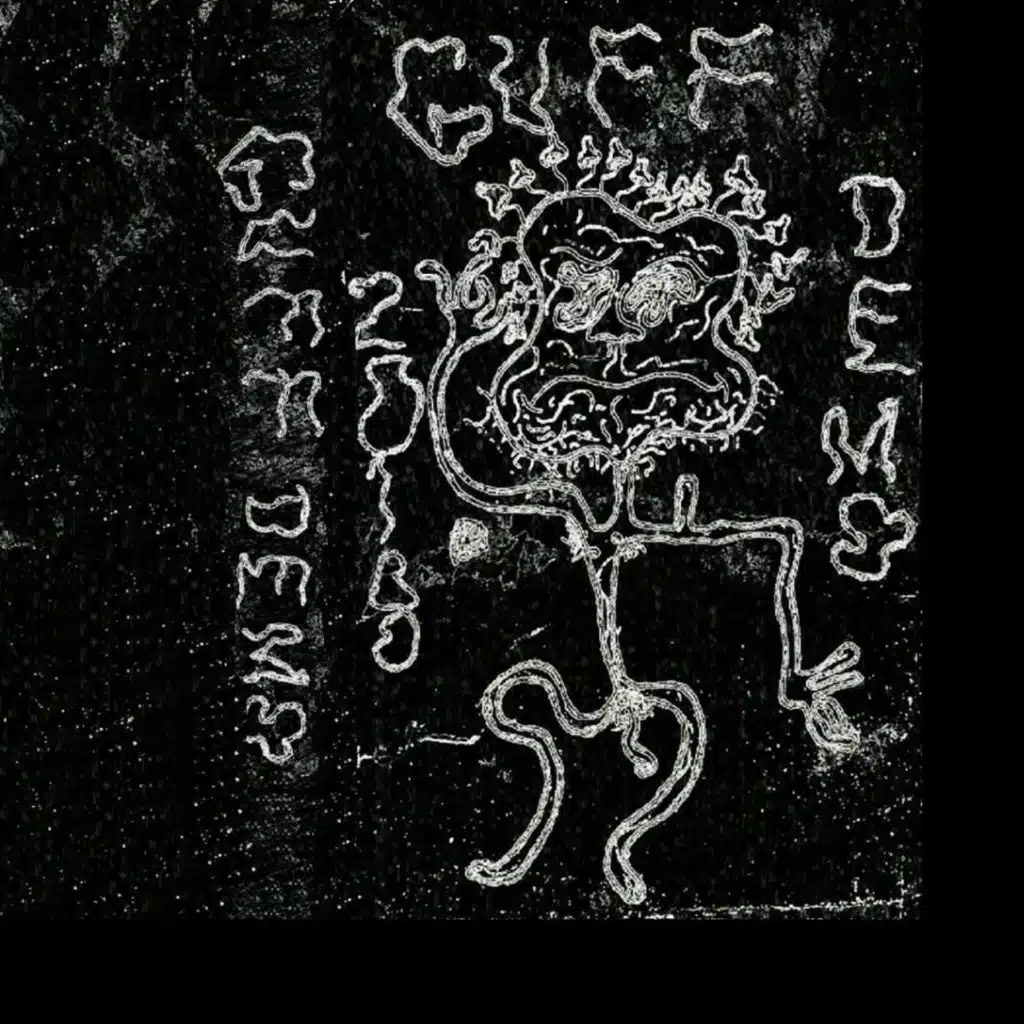 GUFF
DEMO
2018
GUFF DEMO